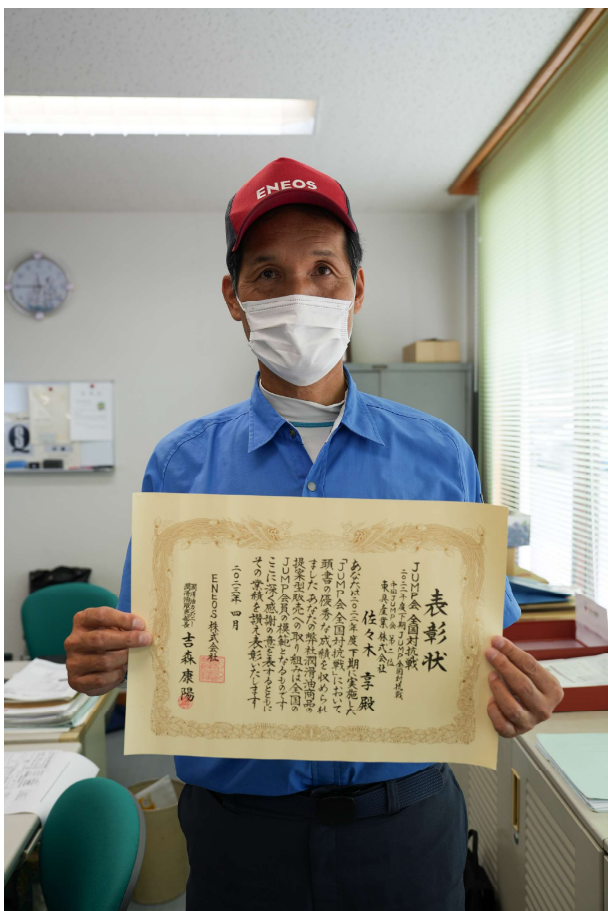 ENEOS
表彰状
JUMP会 全国対抗戦
二〇二二年度下期JUMP全国対抗戦
全国JUMP会 第二位
東良産業株式会社
佐々木 享 殿
あなたは二〇二二年度下期に実施した
「JUMP会全国対抗戦」において
頭書の優秀な成績を収められ
ました あなたの弊社潤滑油商品の
提案型販売への取り組みは全国の
JUMP会員の模範となるものです
ここに深く感謝の意を表するとともに
その業績を讃え表彰いたします
二〇二三年 四月
ENEOS株式会社
潤滑油カンパニー
潤滑油販売部長
吉森 康陽